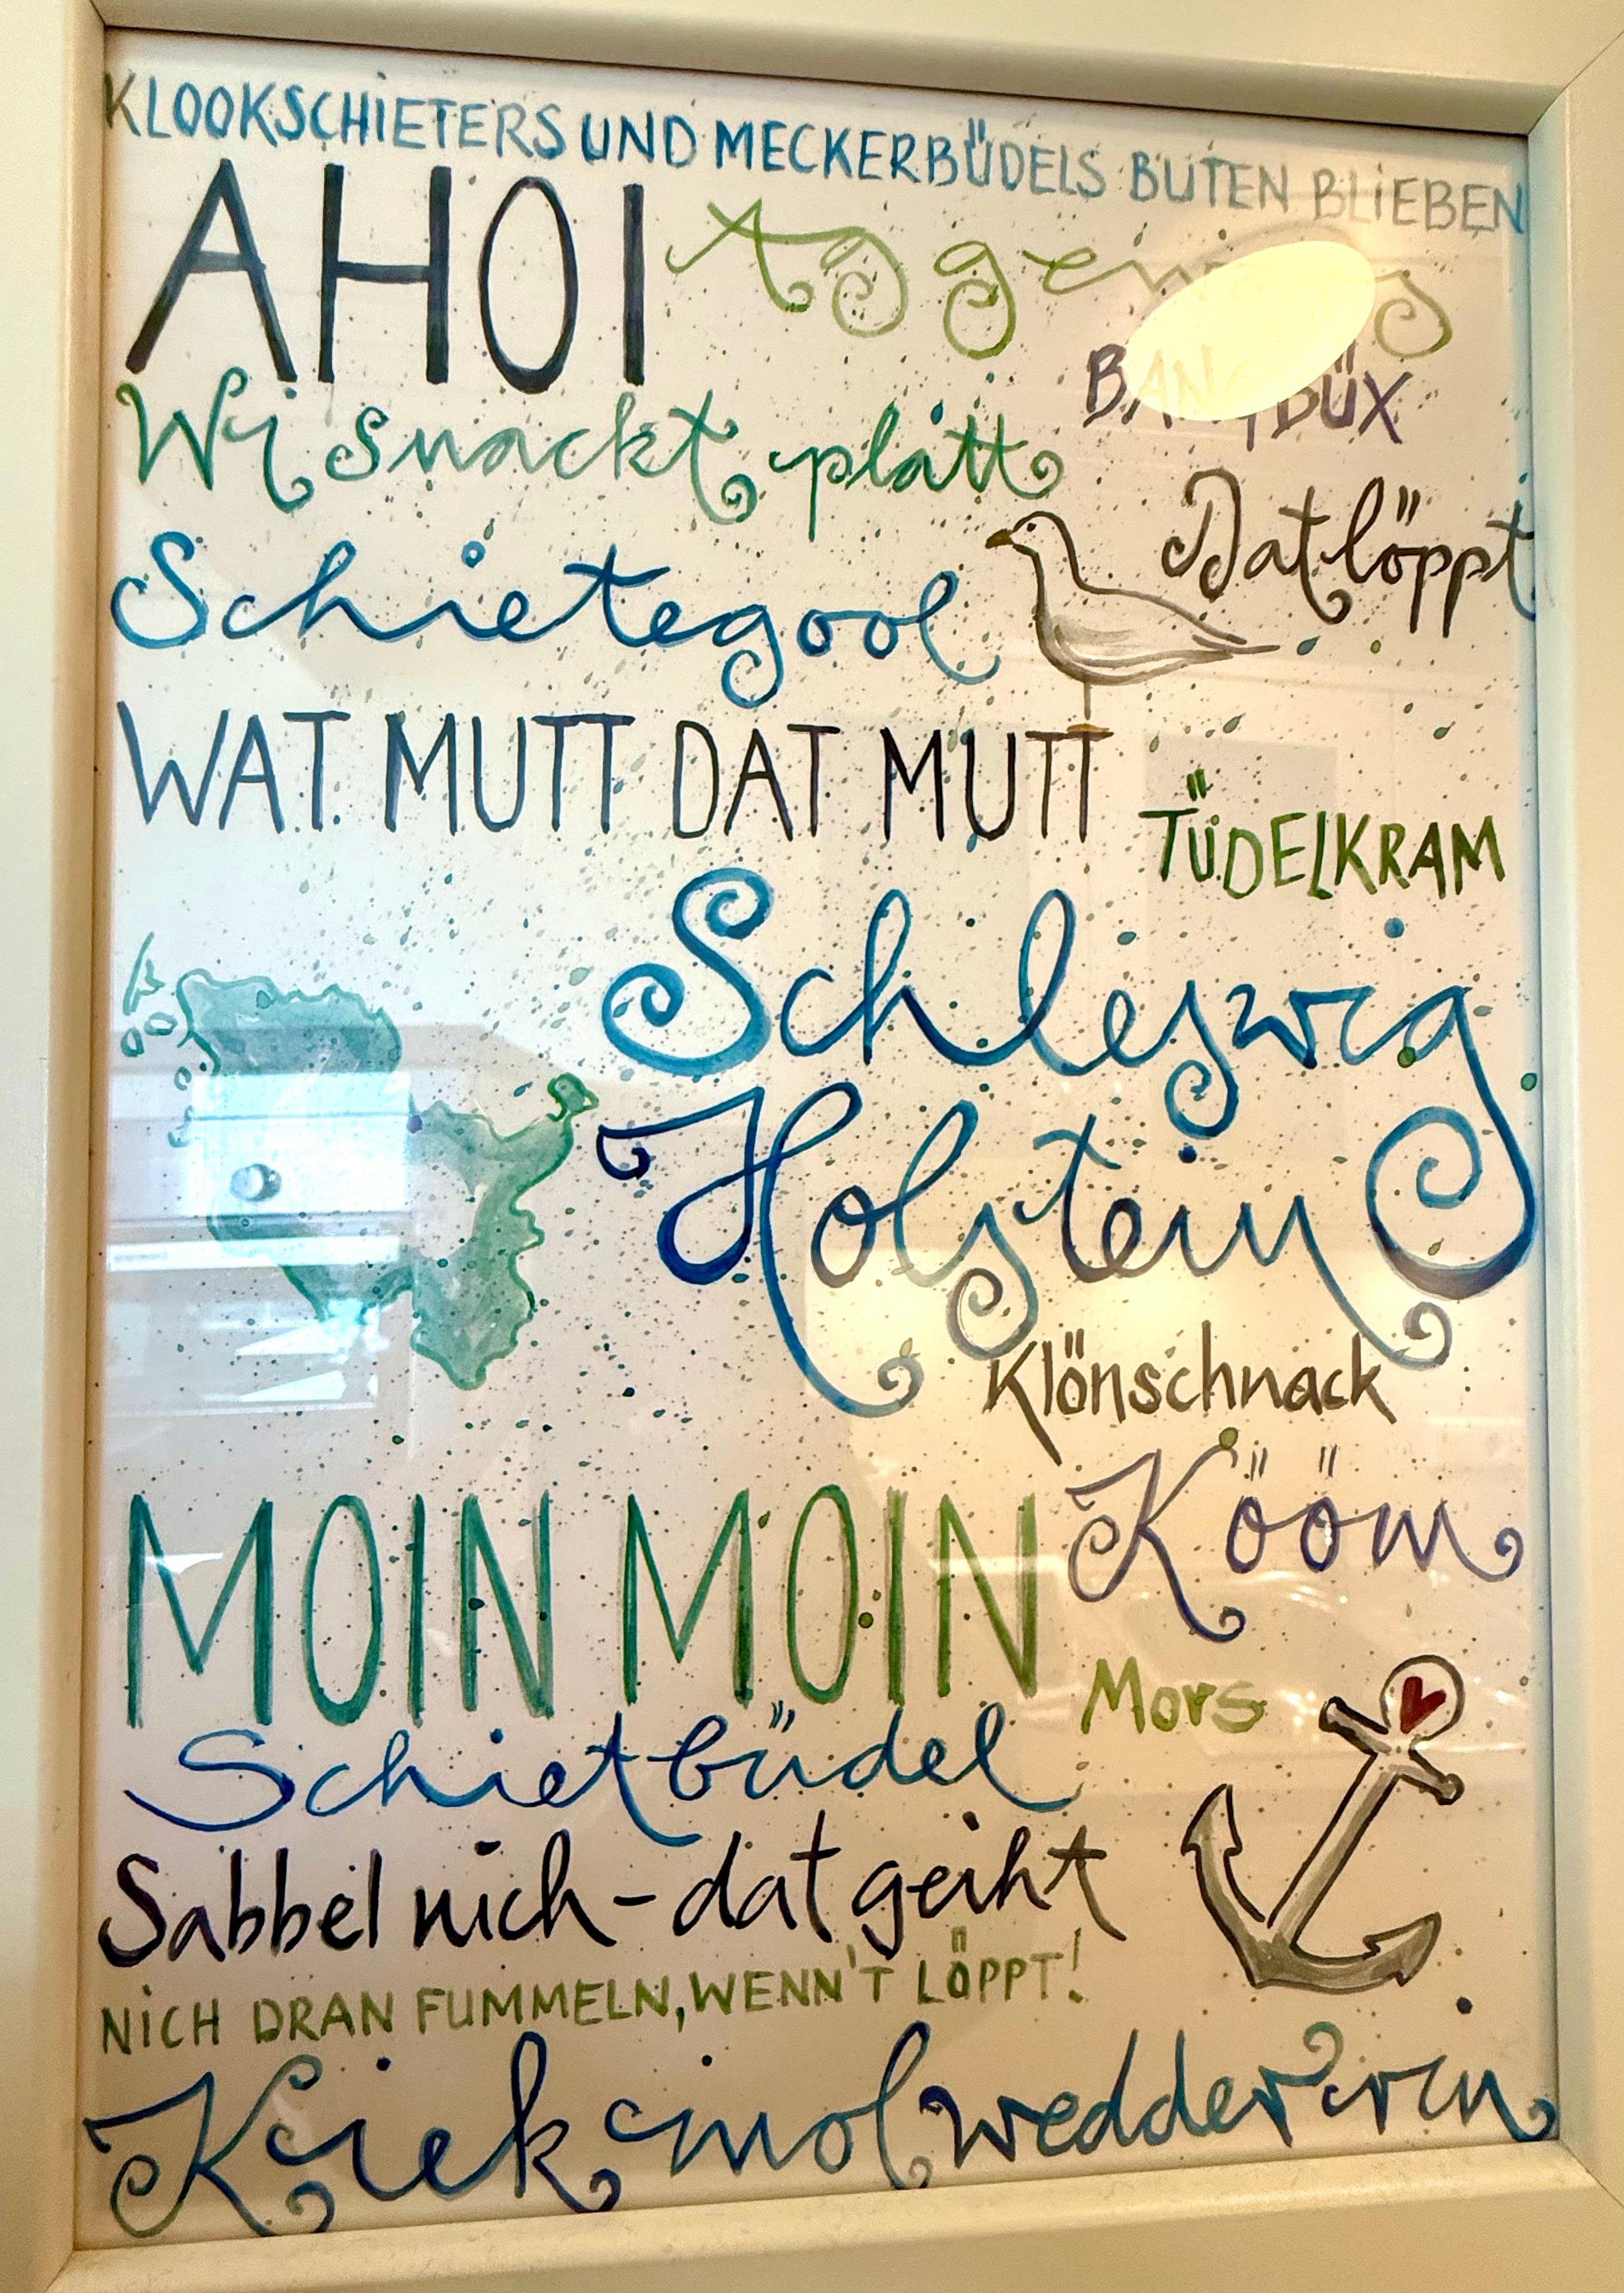 KLOOKSCHIETERS UND MECKERBÜDELS BUTEN BLIEBEN
AHOI
BANGBÜX
Wi snackt platt
Dat löppt
Schietegool
WAT MUTT DAT MUTT
TÜDELKRAM
Schleswig
Holstein
Klönschnack
MOIN MOIN
Kööm
Mors
Schietbüdel
Sabbel nich - dat geiht
NICH DRAN FUMMELN, WENN'T LÖPPT!
Kiek mol wedder rin